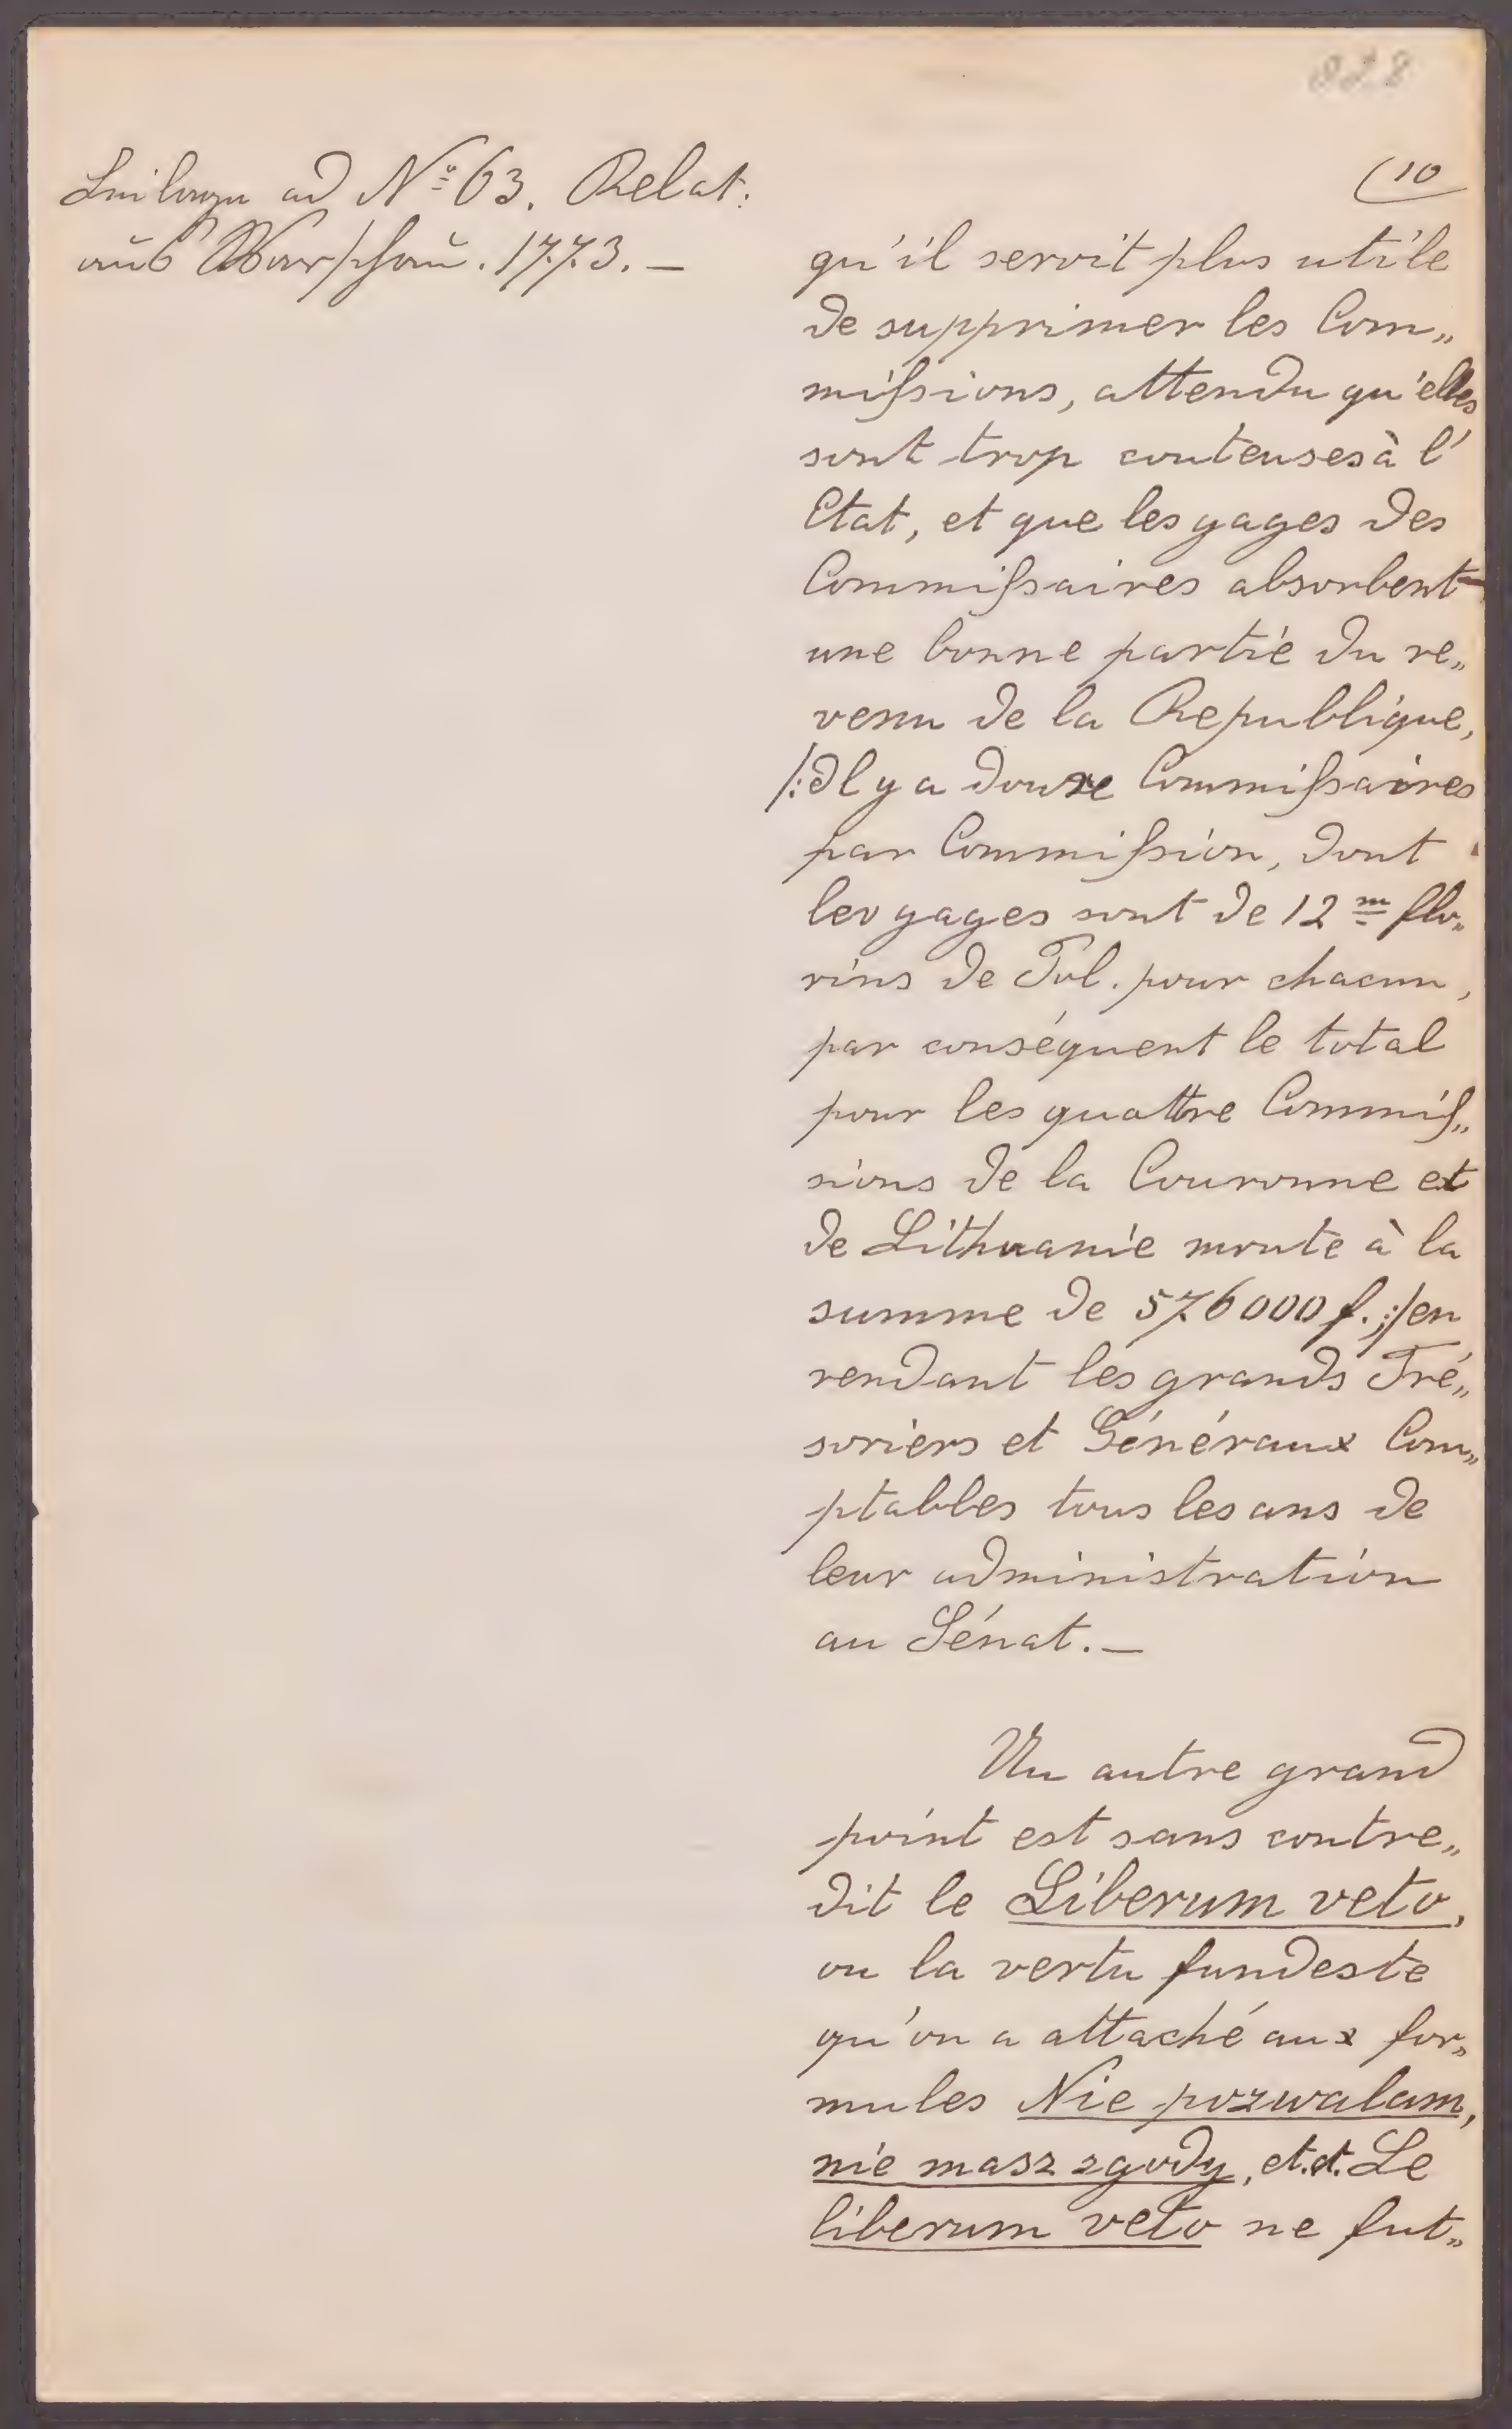 828
Beilage ad Nº 63. Relat:
aus Warschau. 1773. —
(10
qu'il seroit plus utile
de supprimer les Com„
mißsions, attendu qu'elles
sont trop couteuses à l'
Etat, et que les gages des
Commißsaires absorbent
une bonne partie du re„
venu de la Republique,
/:Il y a douze Commißsaires
par Commißsion, dont
les gages sont de 12 m flo„
rins de Pol. pour chacun,
par conséquent le total
pour les quattre Commiß„
sions de la Couronne et
de Lithuanie monte à la
summe de 576000 f.;:/ en
rendant les grands Tré„
soriers et Généraux Com„
ptables tous les ans de
leur administration
au Sénat. —
Un autre grand
point est sans contre„
dit le Liberum veto,
ou la vertu fundeste
qu'on a attaché aux for„
mules Nie pozwalam,
nie masz zgody, et.ct. Le
liberum veto ne fut„